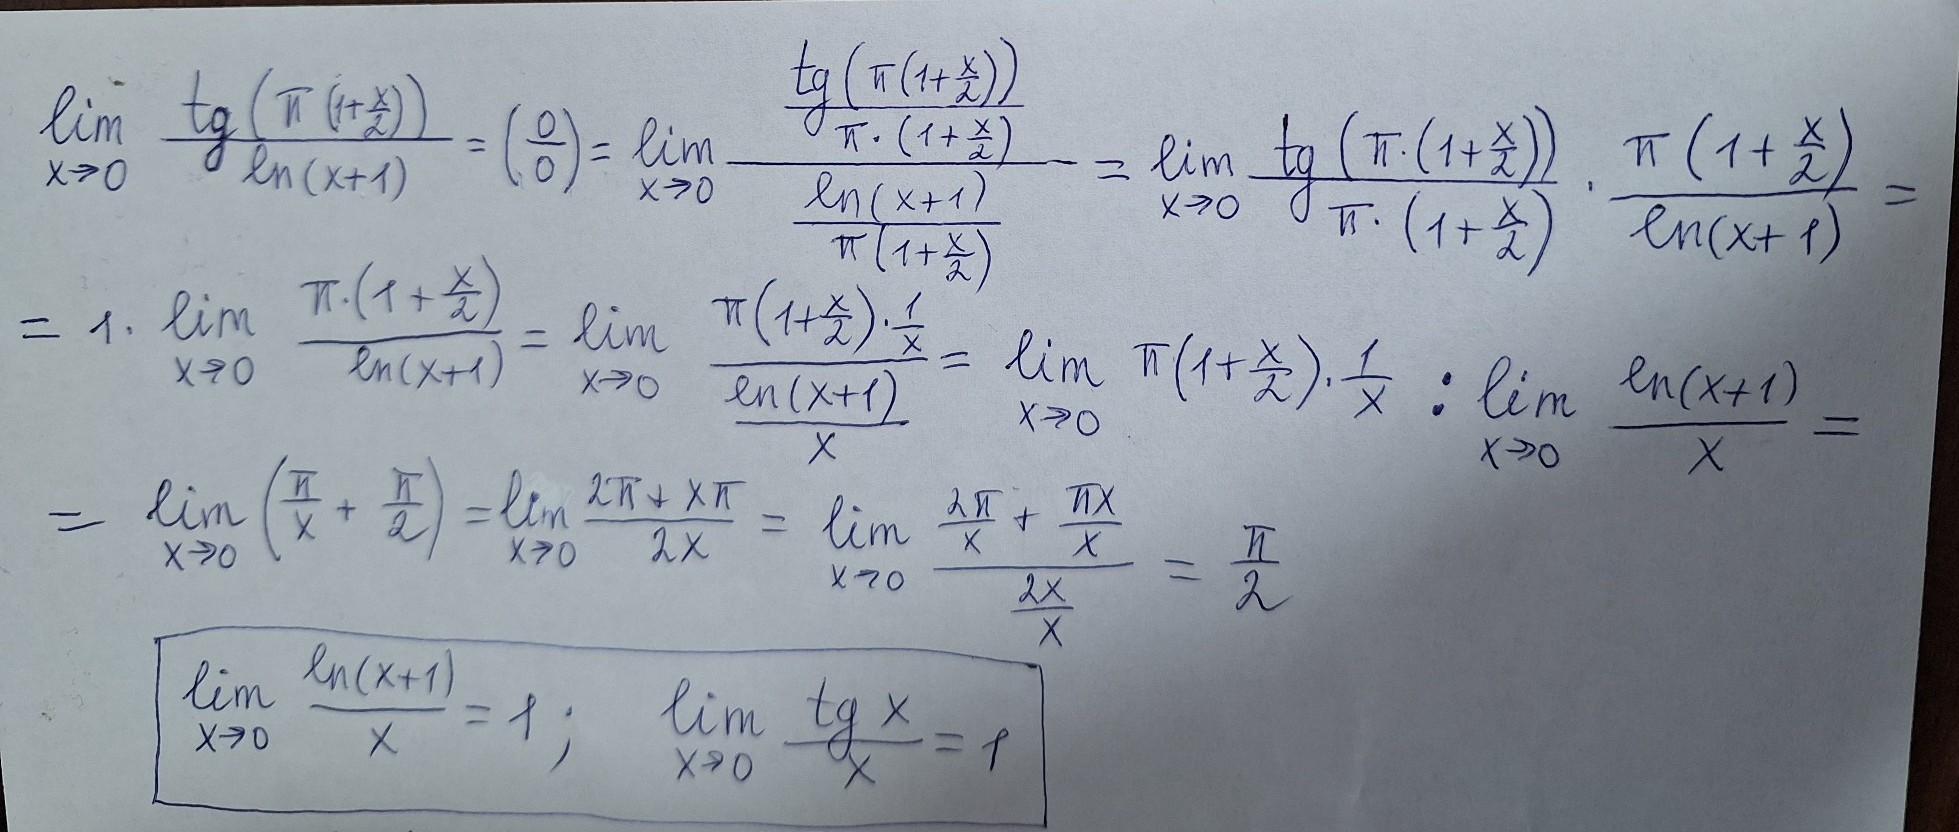 lim x→0 tg(π(1+x/2)) / ln(x+1) = (0/0) = lim x→0 (tg(π(1+x/2)) / π·(1+x/2)) / (ln(x+1) / π(1+x/2)) = lim x→0 tg(π·(1+x/2)) / π·(1+x/2) · π(1+x/2) / ln(x+1) =
= 1· lim x→0 π·(1+x/2) / ln(x+1) = lim x→0 (π(1+x/2)·1/x) / (ln(x+1) / x) = lim x→0 π(1+x/2)·1/x : lim x→0 ln(x+1) / x =
= lim x→0 (π/x + π/2) = lim x→0 (2π+xπ) / 2x = lim x→0 (2π/x + πx/x) / (2x/x) = π/2
lim x→0 ln(x+1) / x = 1; lim x→0 tg x / x = 1